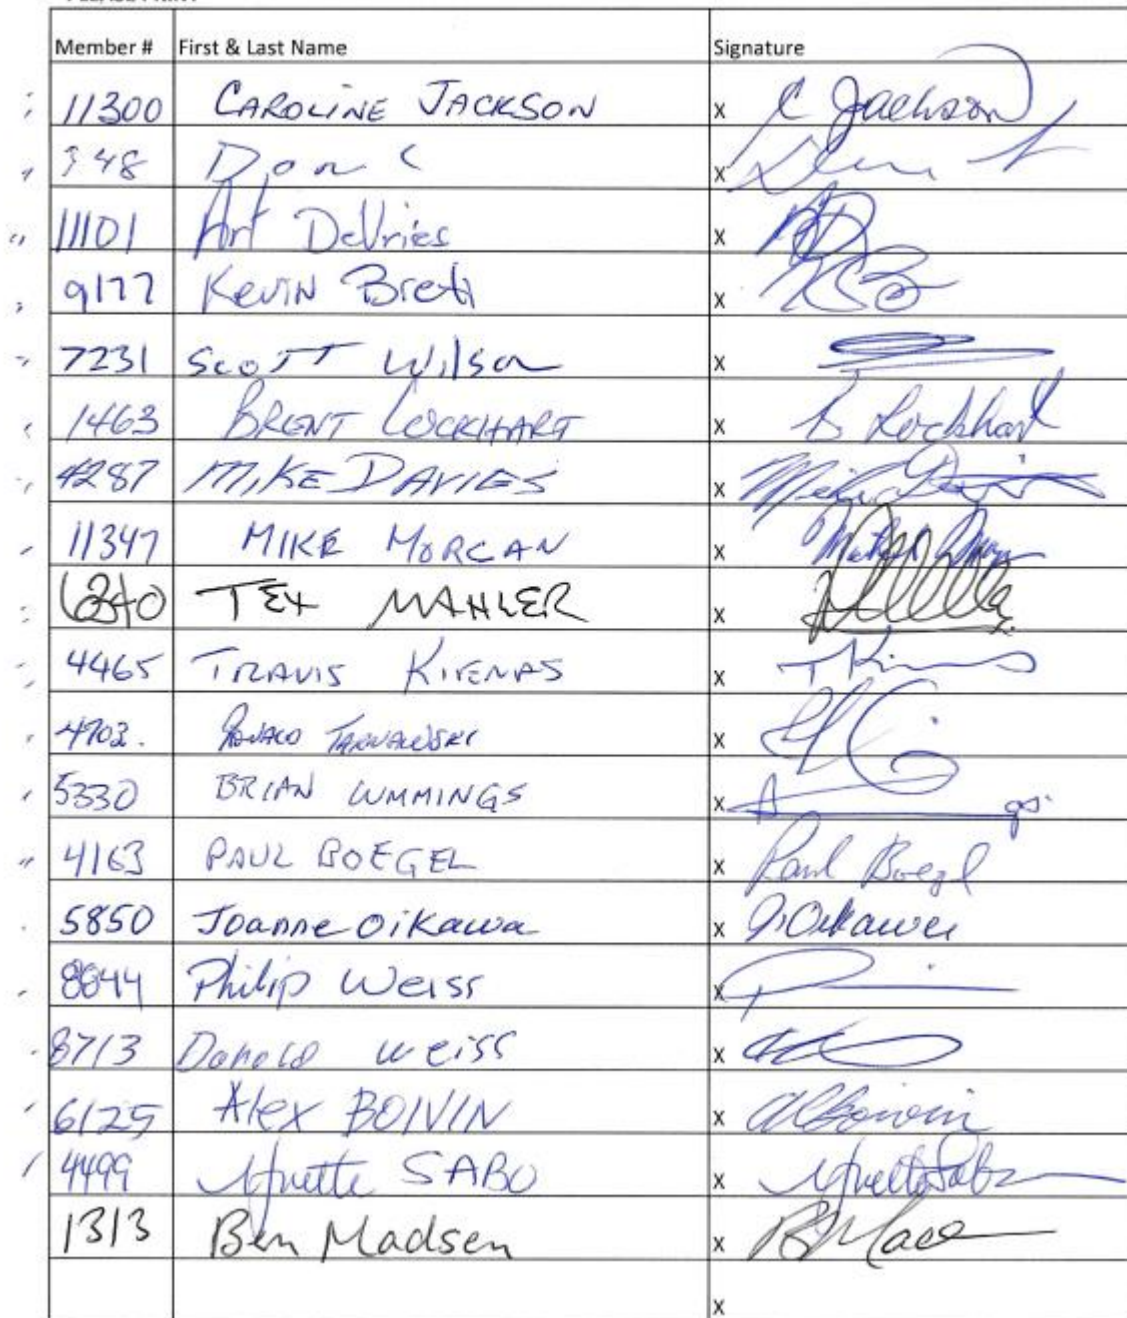 Member # First & Last Name Signature
11300 CAROLINE JACKSON x C Jackson
348 Don x
11101 Art DeVries x
9177 Kevin Brett x
7231 Scott Wilson x
1463 BRENT LOCKHART x B Lockhart
4287 MIKE DAVIES x
11347 MIKE MORGAN x
6340 TEX MAHLER x
4465 TRAVIS KIENAS x
4702. RONALD TARNAWSKI x
5330 BRIAN CUMMINGS x
4163 PAUL BOEGEL x Paul Boegel
5850 Joanne Oikawa x J. Oikawa
8044 Philip Weiss x
8713 Donald Weiss x
6125 Alex BOIVIN x
4499 Yvette SABO x Yvette Sabo
1313 Ben Madsen x
x